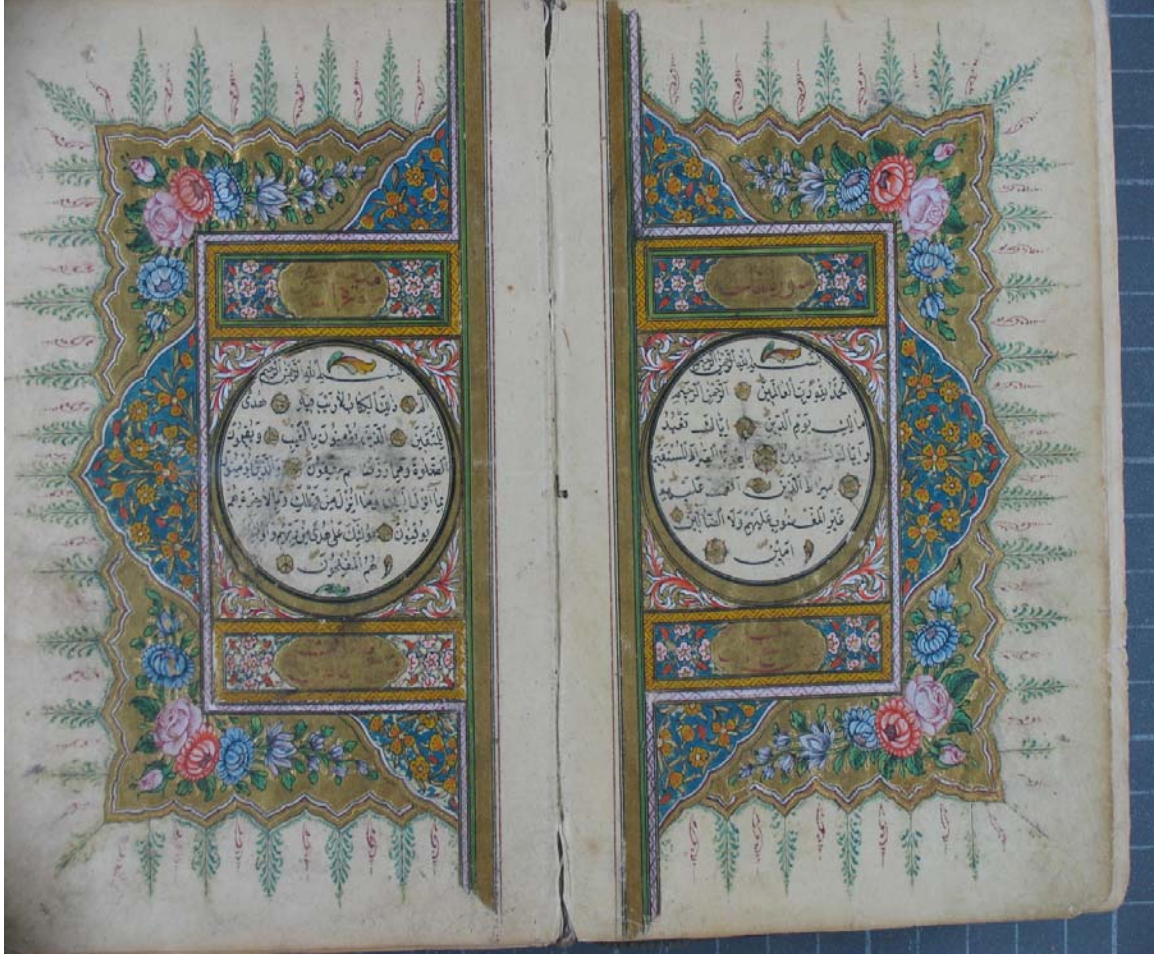 سورة
بِسْمِ اللهِ الرَّحْمنِ الرَّحِيمِ
اَلْحَمْدُ لِلّهِ رَبِّ الْعَالَمِينَ الرَّحْمنِ الرَّحِيمِ
مَالِكِ يَوْمِ الدِّينِ اِيَّاكَ نَعْبُدُ
وَاِيَّاكَ نَسْتَعِينُ اِهْدِنَا الصِّرَاطَ الْمُسْتَقِيمَ
صِرَاطَ الَّذِينَ اَنْعَمْتَ عَلَيْهِمْ
غَيْرِ الْمَغْضُوبِ عَلَيْهِمْ وَلَا الضَّالِّينَ
امِينَ
بِسْمِ اللهِ الرَّحْمنِ الرَّحِيمِ
الم ذلِكَ الْكِتَابُ لَا رَيْبَ فِيهِ هُدًى
لِلْمُتَّقِينَ الَّذِينَ يُؤْمِنُونَ بِالْغَيْبِ وَيُقِيمُونَ
الصَّلوةَ وَمِمَّا رَزَقْنَاهُمْ يُنْفِقُونَ وَالَّذِينَ يُؤْمِنُونَ
بِمَا اُنْزِلَ اِلَيْكَ وَمَا اُنْزِلَ مِنْ قَبْلِكَ وَبِالْاخِرَةِ هُمْ
يُوقِنُونَ اُولئِكَ عَلى هُدًى مِنْ رَبِّهِمْ وَاُولئِكَ
هُمُ الْمُفْلِحُونَ